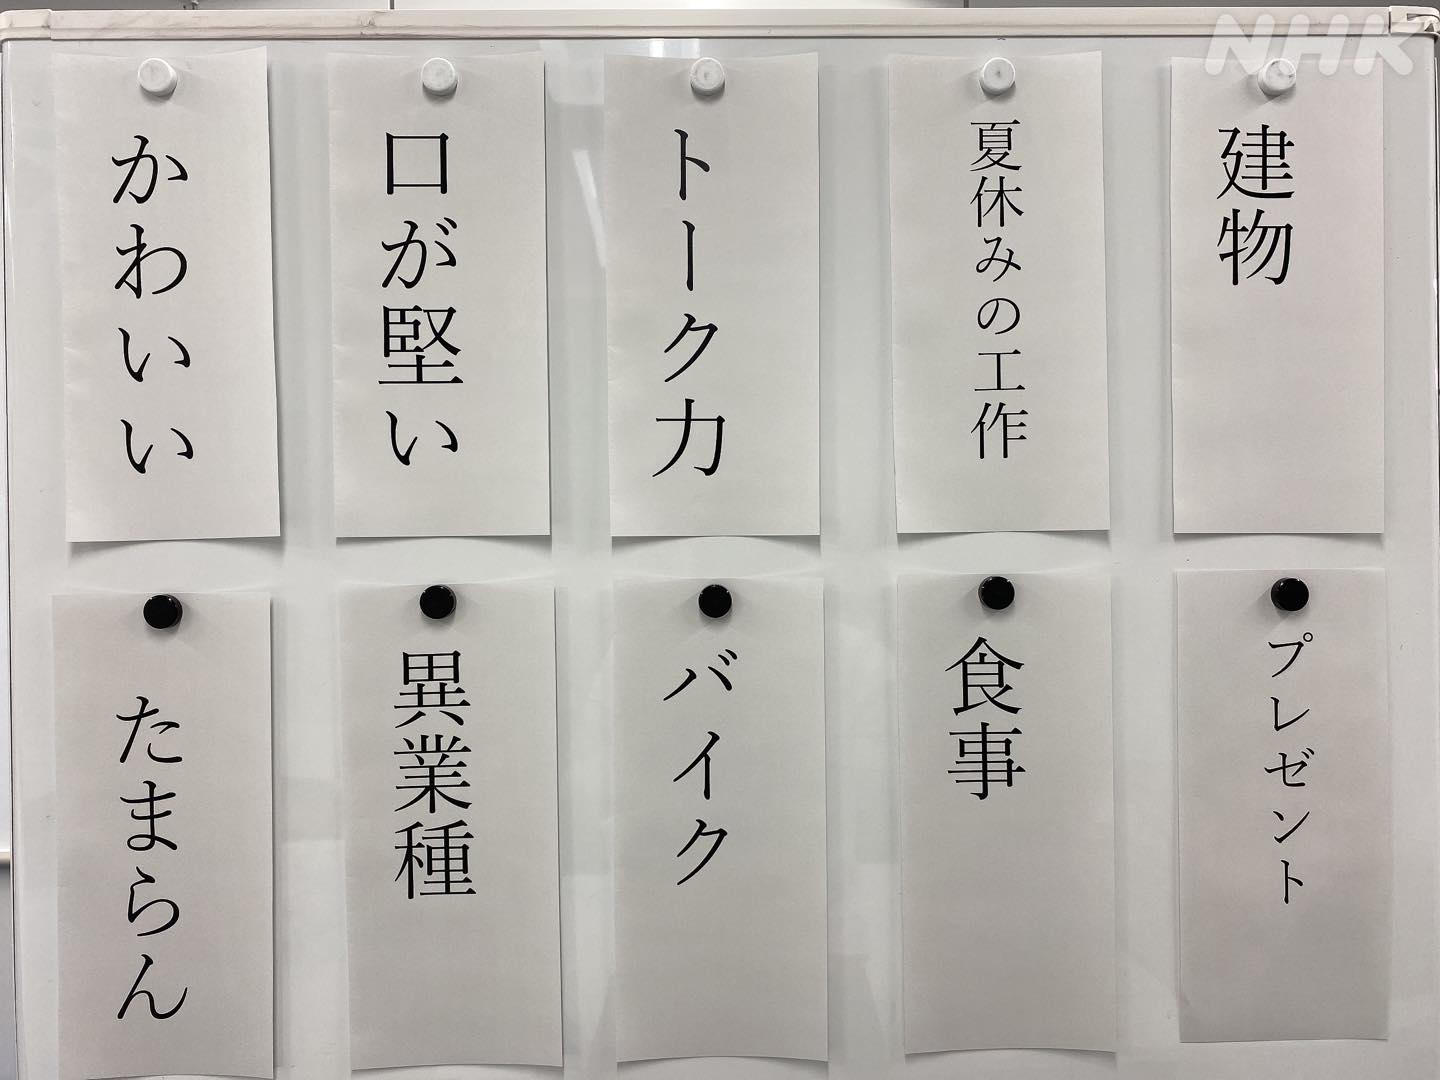 NHK
建物
夏休みの工作
トーク力
口が堅い
かわいい
プレゼント
食事
バイク
異業種
たまらん